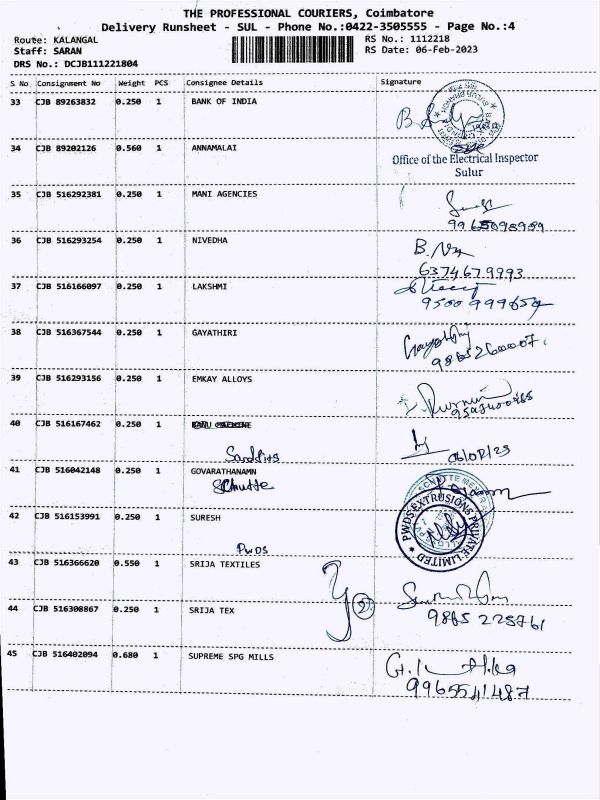 THE PROFESSIONAL COURIERS, Coimbatore
Delivery Runsheet - SUL - Phone No.:0422-3505555 - Page No.:4
Route: KALANGAL RS No.: 1112218
Staff: SARAN RS Date: 06-Feb-2023
DRS No.: DCJB111221804
S No Consignment No Weight PCS Consignee Details Signature
33 CJB 89263832 0.250 1 BANK OF INDIA
34 CJB 89202126 0.560 1 ANNAMALAI
Office of the Electrical Inspector
Sulur
35 CJB 516292381 0.250 1 MANI AGENCIES
9965098989
36 CJB 516293254 0.250 1 NIVEDHA
6374679993
37 CJB 516166097 0.250 1 LAKSHMI
38 CJB 516367544 0.250 1 GAYATHIRI
39 CJB 516293156 0.250 1 EMKAY ALLOYS
40 CJB 516167462 0.250 1
06/02/23
41 CJB 516042148 0.250 1 GOVARATHANAMN
Schutte
42 CJB 516153991 0.250 1 SURESH
PWDS EXTRUSIONS PRIVATE LIMITED
PWDS
43 CJB 516366620 0.550 1 SRIJA TEXTILES
44 CJB 516308867 0.250 1 SRIJA TEX
2
9865 225761
45 CJB 516402094 0.680 1 SUPREME SPG MILLS
9965541487